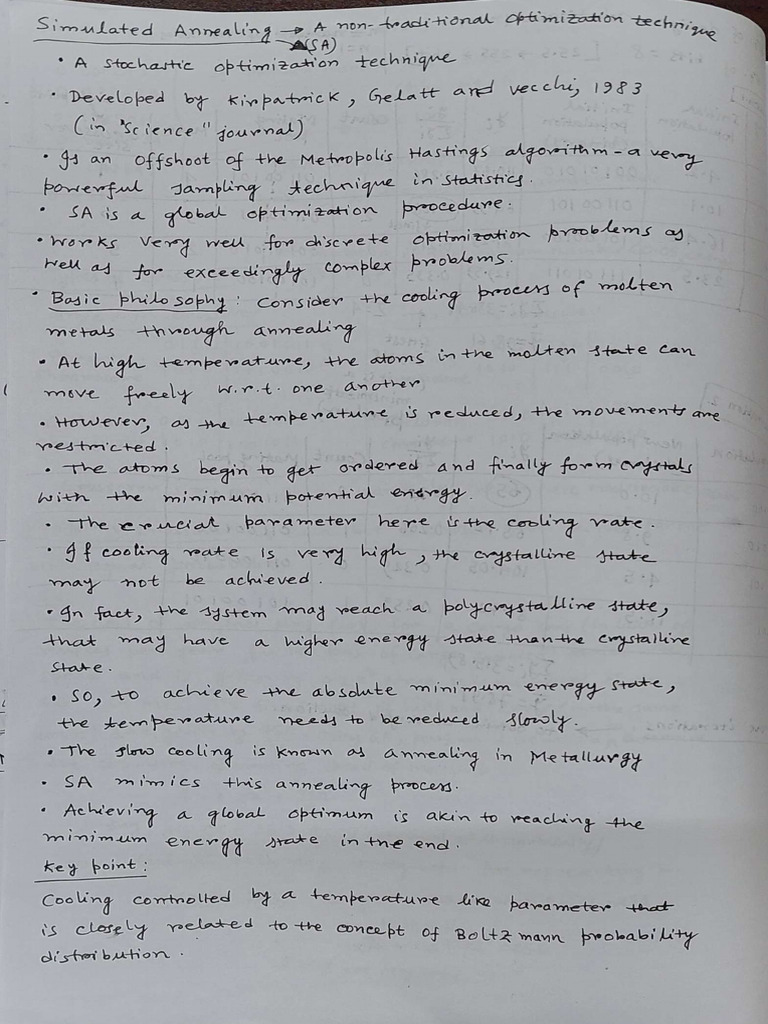 Simulated Annealing → A non-traditional optimization technique
(SA)
• A stochastic optimization technique
• Developed by Kirpatrick, Gelatt and vecchi, 1983
(in "Science" journal)
• Is an offshoot of the Metropolis Hastings algorithm - a very
powerful sampling technique in statistics.
• SA is a global optimization procedure.
• Works very well for discrete optimization problems as
well as for exceedingly complex problems.
• Basic philosophy: Consider the cooling process of molten
metals through annealing
• At high temperature, the atoms in the molten state can
move freely w.r.t. one another
• However, as the temperature is reduced, the movements are
restricted.
• The atoms begin to get ordered and finally form crystals
with the minimum potential energy.
• The crucial parameter here is the cooling rate.
• If cooling rate is very high, the crystalline state
may not be achieved.
• In fact, the system may reach a polycrystalline state,
that may have a higher energy state than the crystalline
state.
• So, to achieve the absolute minimum energy state,
the temperature needs to be reduced slowly.
• The slow cooling is known as annealing in Metallurgy
• SA mimics this annealing process.
• Achieving a global optimum is akin to reaching the
minimum energy state in the end.
Key point:
Cooling controlled by a temperature like parameter that
is closely related to the concept of Boltzmann probability
distribution.